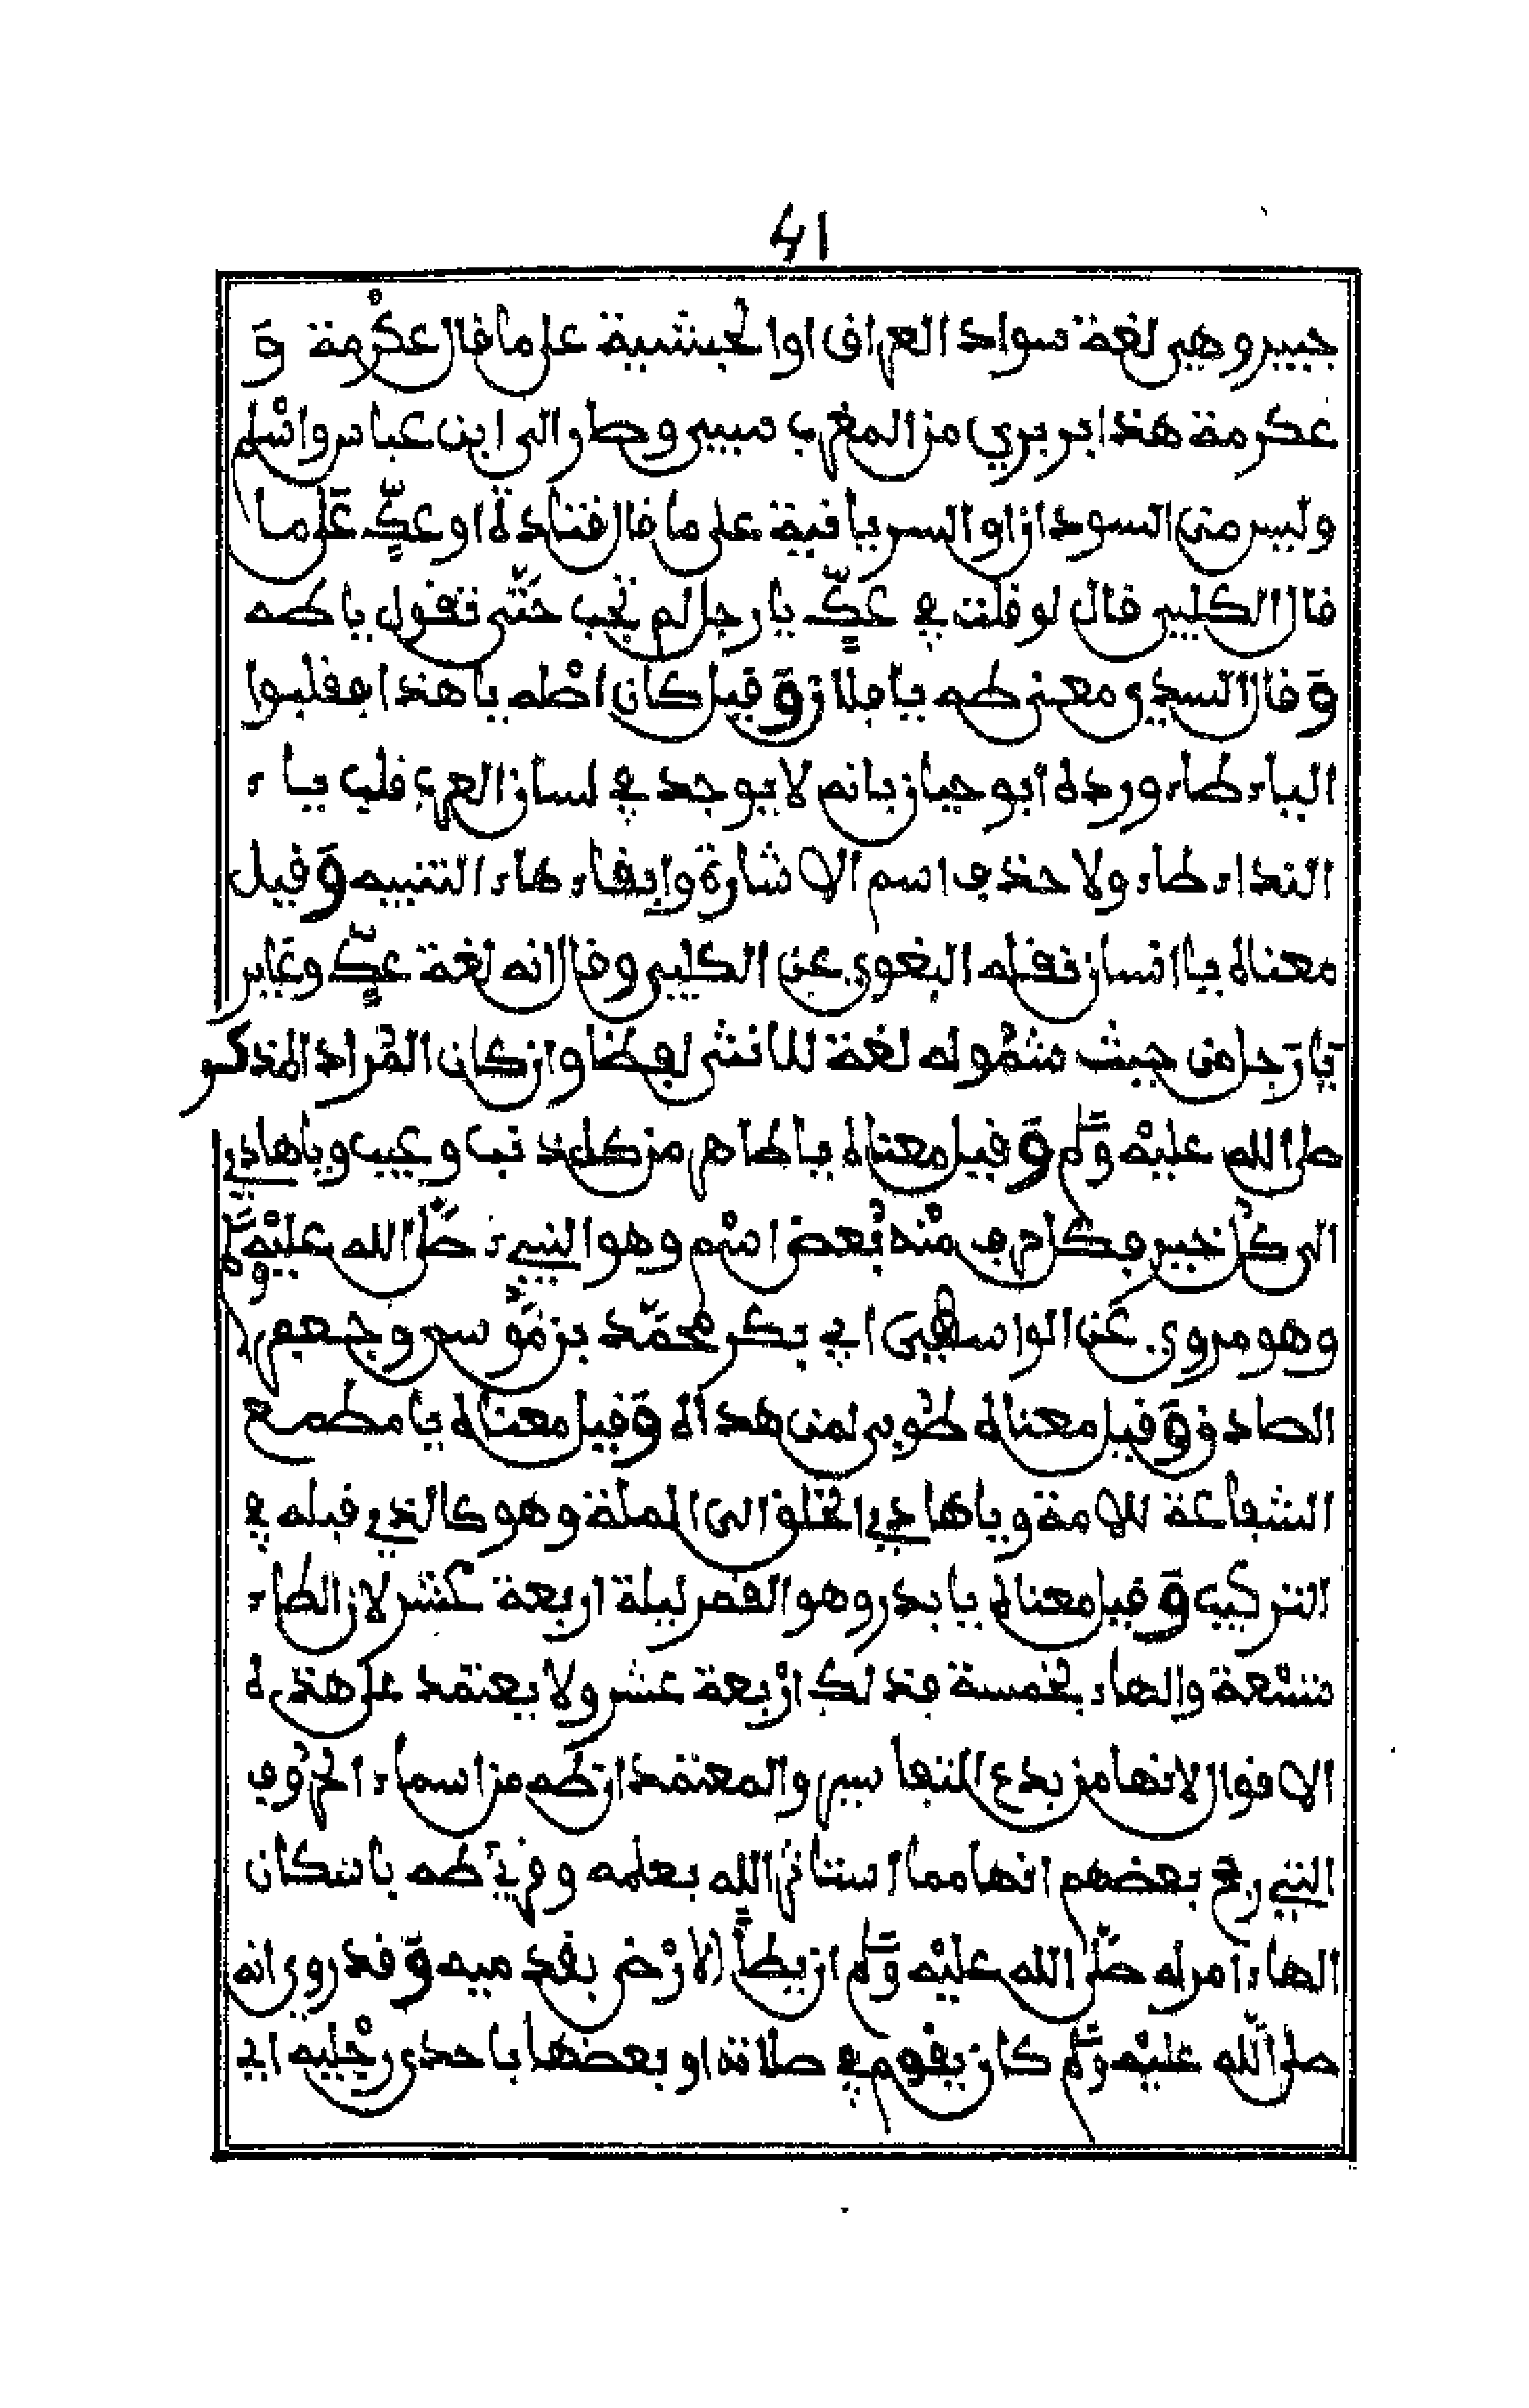 41
جبير وهي لغة سواد العراق او الحبشية على ما قال عكْرمة وَ
عكرمة هذا بربري من المغرب سبي وصار الى ابن عباس واسْلم
وليس من السودان او السريانية على ما قال قتادة او عكٍّ عَلى ما
قال الكلبي قال لو قلت في عكٍّ يا رجل لم يجب حتَّى تقول يا طه
وَقال السدي معنى طه يا فلان وَقيل كان اصْله يا هذا فقلبوا
الياء طاء ورده ابو حيان بانه لا يوجد في لسان العرب قلب ياء
النداء طاء ولا حذف اسم الاشارة وابقاء هاء التنبيه وَقيل
معناه يا انسان نقله البغوي عن الكلبي وقال انه لغة عكٍّ وغاير
يَا رَجل من حيث شمُوله لغة للانثى لفظا وان كان المُراد المذكور
صلى الله عليْه وَسلم وَقيل معناه يا طاهر من كل ذنب وعيب ويا هادي
الى كُل خير فكل حرف منْه بُعض اسْم وهو النبيء صَلّى الله عليْه وسَلم
وهو مروي عَن الواسطي ابي بكر محمَّد بن مُوسى وجعفر
الصادق وَقيل معناه طُوبى لمن هداه وَقيل معناه يا مطمع
الشفاعة للامة ويا هادي الخَلق الى الملة وهو كالذي قبله في
التركيب وَقيل معناه يا بدر وهو القمر ليلة اربعة عشر لان الطاء
تسْعة والهاء بخمسة فذلك ارْبعة عشر ولا يعتمد على هذه
الاقوال لانها من بدع التفاسير والمعتمد ان طه من اسماء الحرُوف
التي رجح بعضهم انها مما استاثر الله بعلمه وقرئَ طه باسكان
الهاء امر له صَلّى الله عليْه وَسلم ان يطأَ الارْض بقدميه وَقد روي انه
صلى الله عليْه وَسلم كان يقوم في صلاته او بعضها باحدى رجْليه اي